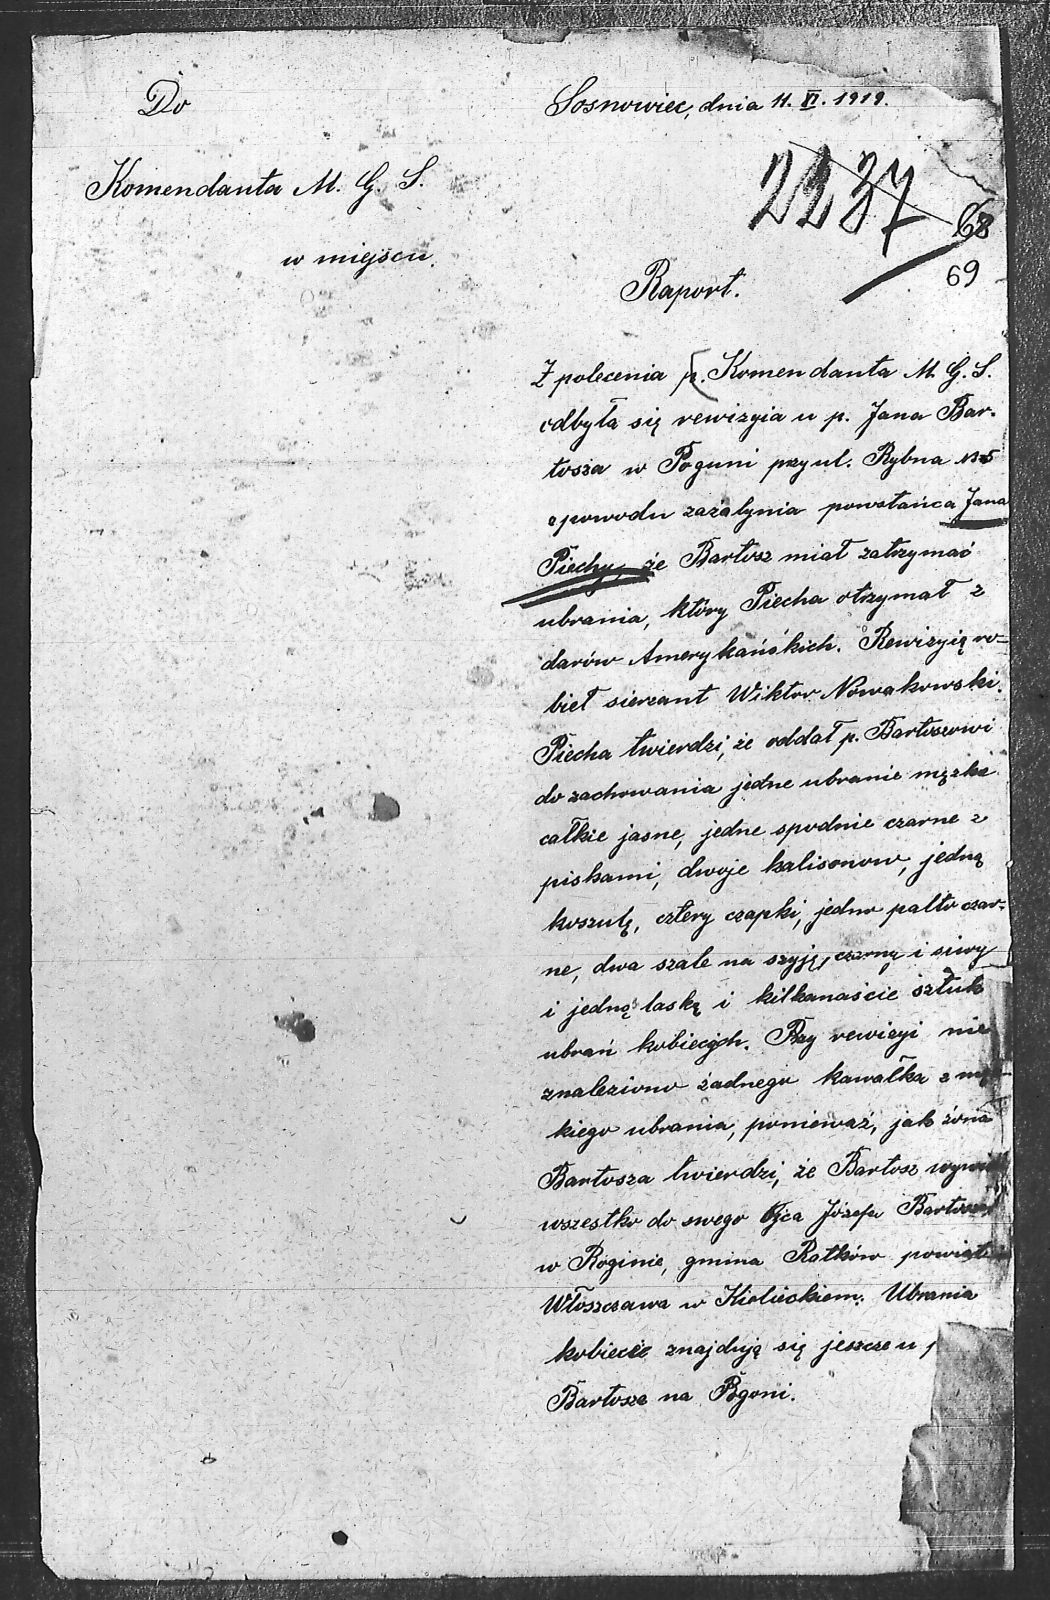 Do
Sosnowiec, dnia 11. VI. 1919.
Komendanta M. G. S.
w miejscu.
2237
68
69
Raport.
Z polecenia p. Komendanta M. G. S.
odbyła się rewizyia u p. Jana Bar-
tosza w Poguni przy ul. Rybna №5
spowodu zażalynia powstańca Jana
Piechy, że Bartosz miał zatrzymać
ubrania, który Piecha otrzymał z
darów Amerykańskich. Rewizyią ro-
bieł sierzant Wiktor Nowakowski.
Piecha twierdzi, że oddał p. Bartoszowi
do zachowania jedne ubranie męzke
całkie jasne, jedne spodnie czarne z
piskami, dwoje kalisonow, jedną
koszulę, cztery czapki, jedno palto czar-
ne, dwa szale na szyję, czarny i siwy
i jedną laskę i kilkanaście sztuk
ubrań kobiecych. Przy rewizyi nie
znaleziono żadnego kawałka z
kiego ubrania, ponieważ, jak żona
Bartosza twierdzi, że Bartosz
wszestko do swego Ojca Józefa Bartosza
w Roginie, gmina Ratków powiat
Włoszczawa w Kieleckiem. Ubrania
kobiecie znajdują się jeszcze u
Bartosza na Pogoni.